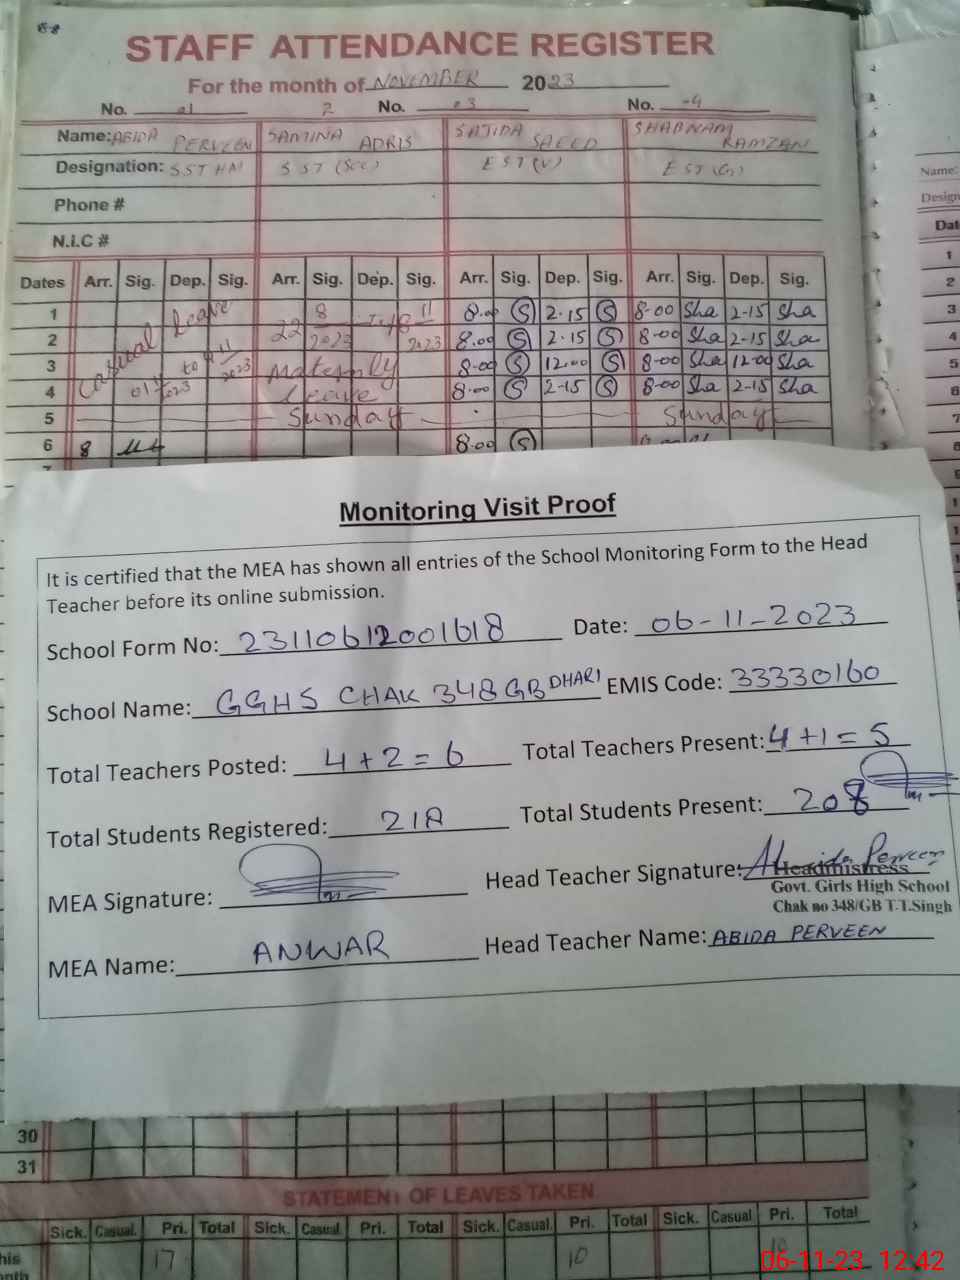 STAFF ATTENDANCE REGISTER
For the month of NOVEMBER 2023
No. 01 2 No. 03 No. -4
Name: ABIDA PERVEEN SAMINA ADRIS SAJIDA SAEED SHABNAM RAMZAN
Designation: SST HM SST (Sce) EST (V) EST (G)
Phone #
N.I.C #
Dates Arr. Sig. Dep. Sig. Arr. Sig. Dep. Sig. Arr. Sig. Dep. Sig. Arr. Sig. Dep. Sig.
Casual Leave
to 11 2023
22 8 2023 To 11 2023
Maternity
Leave
1 8.00 S 2.15 S 8-00 Sha 2-15 Sha
2 8.00 S 2.15 S 8-00 Sha 2-15 Sha
3 8-00 S 12.00 S 8-00 Sha 12-00 Sha
4 8.00 S 2-15 S 8-00 Sha 2-15 Sha
5 Sunday Sunday
6 8 8.00 S
Name:
Design
Dat
1
2
3
4
5
6
7
Monitoring Visit Proof
It is certified that the MEA has shown all entries of the School Monitoring Form to the Head
Teacher before its online submission.
School Form No: 23110612001618 Date: 06-11-2023
School Name: GGHS CHAK 348GB DHARI EMIS Code: 33330160
Total Teachers Posted: 4+2=6 Total Teachers Present: 4+1=5
Total Students Registered: 218 Total Students Present: 208
MEA Signature: Head Teacher Signature: Abida Perveen
Headmistress
Govt. Girls High School
Chak no 348/GB T.T.Singh
MEA Name: ANWAR Head Teacher Name: ABIDA PERVEEN
30
31
STATEMENT OF LEAVES TAKEN
Sick. Casual. Pri. Total Sick. Casual. Pri. Total Sick. Casual. Pri. Total Sick. Casual Pri. Total
17 10 10
06-11-23 12:42